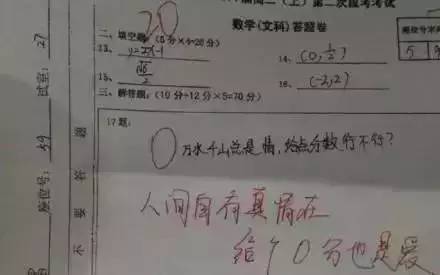 高二(上)第二次段考考试
数学(文科)答题卷
20
二、填空题:(5分×4=20分)
13、y=2x-1
14、(0,1/2)
15、√6/2
16、(-2,2)
三、解答题:(10分+12分×5=70分)
17题:
0 万水千山总是情,给点分数行不行?
人间自有真情在
给个0分也是爱
试室:27
座位号:59
不要答题